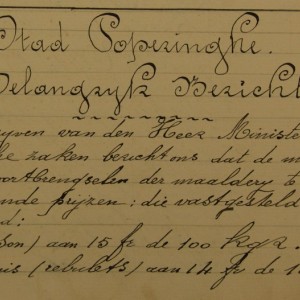 Stad Poperinghe.
Belangryk Bericht
yven van den Heer Ministe
ke zaken bericht ons dat de m
oortbrengselen der maaldery t
ende prijzen: die vastgesteld
d:
son) aan 15 fr de 100 kgr.
is (rebulets) aan 14 fr de 1